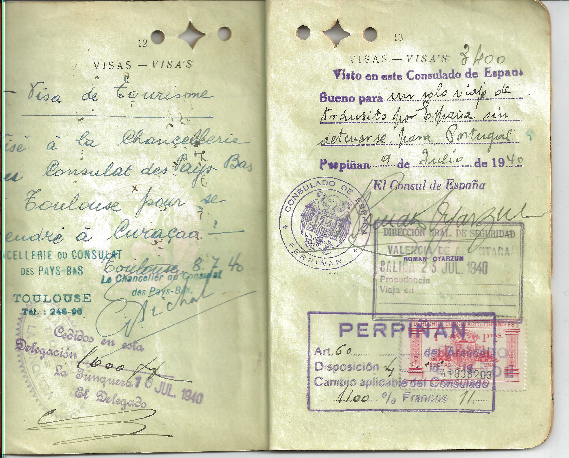 12
VISAS — VISA'S
Visa de tourisme
à la Chancellerie
Consulat des Pays Bas
Toulouse pour se
rendre à Curaçao
CELLERIE DU CONSULAT
DES PAYS-BAS
TOULOUSE
Tél.: 246-96
Toulouse 8.7.40
Le Chancelier du Consulat
des Pays-Bas.
Cedidos en esta
Delegación
La Junquera 16 JUL. 1940
El Delegado
13
VISAS — VISA'S
3400
Visto en este Consulado de España
Bueno para un solo viaje de
tránsito por España sin
detenerse para Portugal
Perpiñan 9 de Julio de 1940
El Consul de España
CONSULADO DE ESPAÑA
PERPIÑAN
ROMAN OYARZUN
DIRECCION GRAL. DE SEGURIDAD
VALENCIA DE ALCANTARA
SALIDA 23 JUL. 1940
Procedencia
Viaja en
PERPIÑAN
Art. 60 del Arancel
Disposición 4
Cambio aplicable del Consulado
1100 % Francos 11